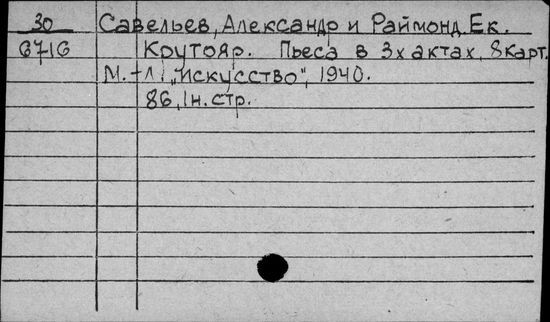 30 Савельев, Александр и Раймонд. Ек.
6716 Крутояр. Пьеса в 3х актах, 8 карт.
М.-Л., „Искусство", 1940.
86, 1н. стр.